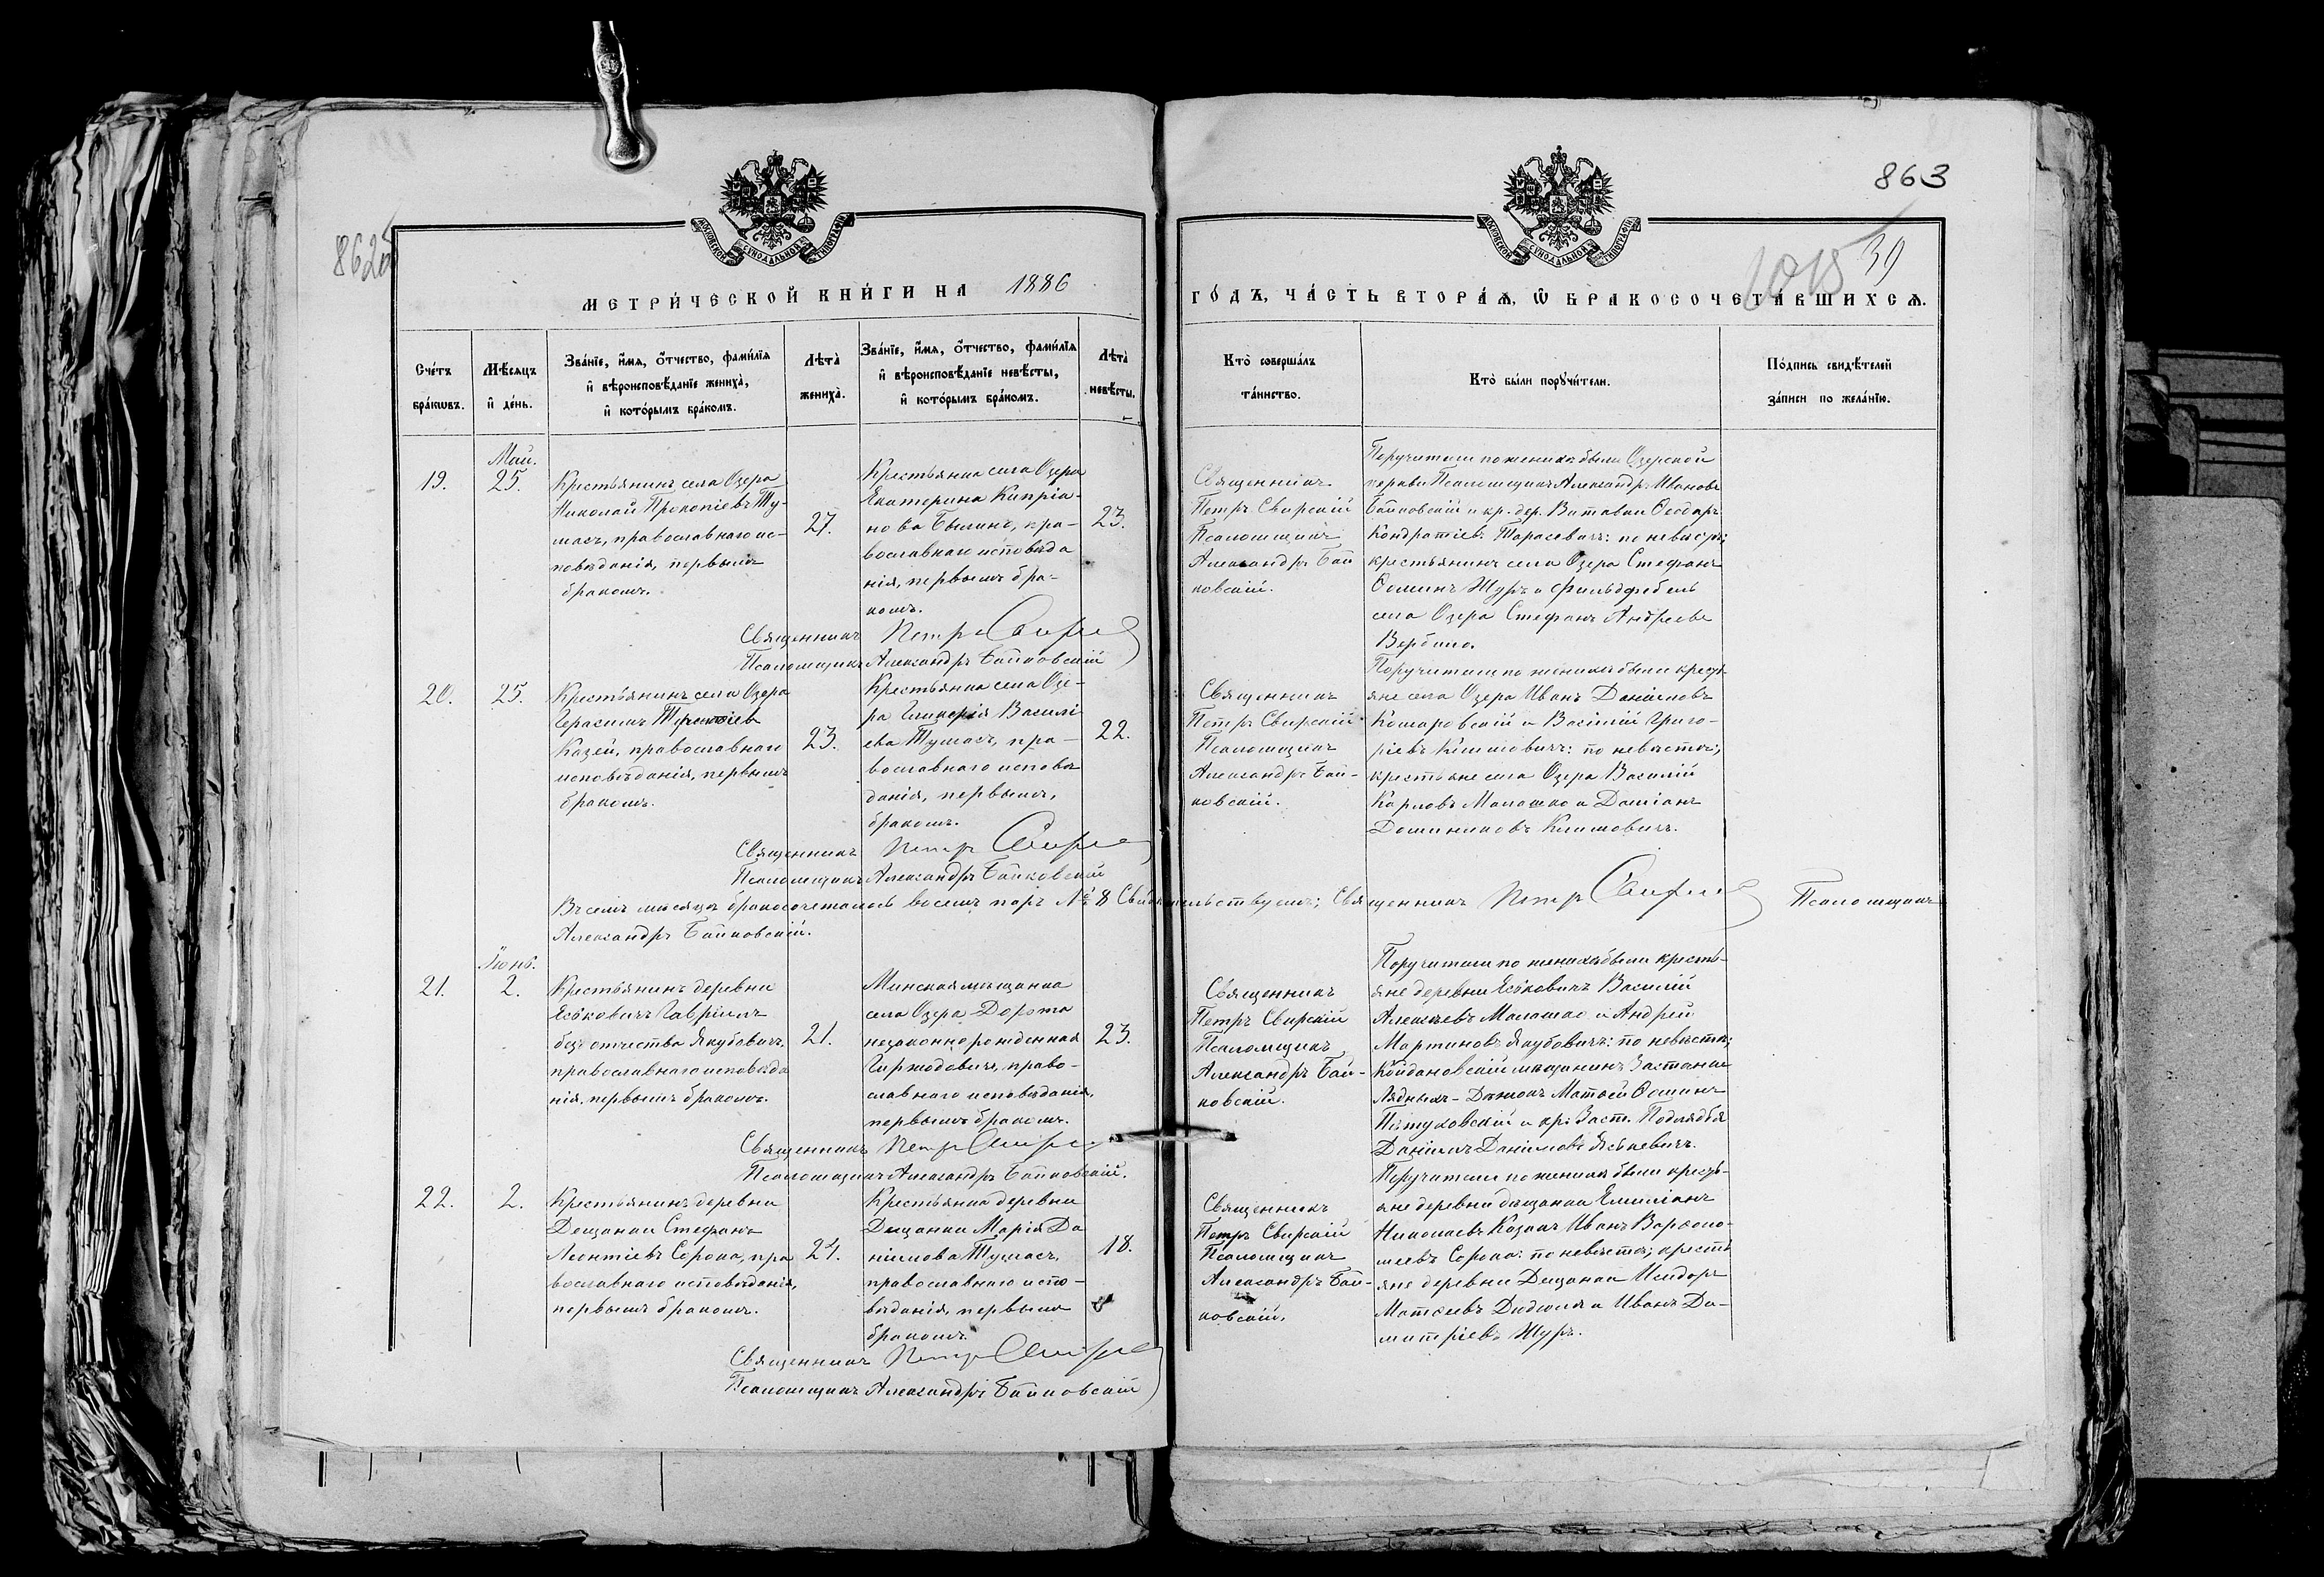 863
862об
1015
39
МОСКОВСКОЙ СѴНОДАЛЬНОЙ ТИПОГРАФІИ
МОСКОВСКОЙ СѴНОДАЛЬНОЙ ТИПОГРАФІИ
МЕТРИ́ЧЕСКОЙ КНИ́ГИ НА 1886
ГО́ДЪ, ЧА́СТЬ ВТОРА́Ѧ, Ѿ БРАКОСОЧЕТА́ВШИХСѦ.
Сче́тъ бра́кѡвъ.
Мѣ́сѧцъ и҆ де́нь.
Зва́нїе, и҆́мѧ, ѻ҆́тчество, фами́лїѧ
и҆ вѣроисповѣ́данїе жениха̀,
и҆ кото́рымъ бра́комъ.
Лѣта̀ жениха̀.
Зва́нїе, и҆́мѧ, ѻ҆́тчество, фами́лїѧ
и҆ вѣроисповѣ́данїе невѣ́сты,
и҆ кото́рымъ бра́комъ.
Лѣта̀ невѣ́сты.
Кто̀ соверша́лъ
та́инство.
Кто̀ бы́ли порꙋчи́тели.
По́дпись свидѣ́телей
за́писи по жела́нїю.
Май.
19.
25.
Крестьянинъ села Озера
Николай Прокопіевъ Ту-
масъ, православнаго ис-
повѣданія, первымъ
бракомъ.
27.
Крестьянка села Озера
Екатерина Кипріа-
нова, пра-
вославнаго исповѣда
нія, первымъ бра-
комъ.
23.
Священникъ
Петръ Свирскій
Псаломщикъ
Александръ Бай
ковскій.
Поручители по женихѣ были Озерской
церкви Псаломщикъ Александръ Ивановъ
Байковскій и кр. дер. Ѳеодоръ
Кондратіевъ Тарасевичъ: по невѣстѣ;
крестьянинъ села Озера Стефанъ
Осиинъ Щуръ и Фельдфебель
села Озера Стефанъ Андреевъ
Вербило.
Священникъ Петръ Свирскій
Псаломщикъ Александръ Байковскій
20.
25.
Крестьянинъ села Озера
Герасимъ
Казей, православнаго
исповѣданія, первымъ
бракомъ.
23.
Крестьянка села Озе-
ра Гликерія Василі
ева Тумасъ, пра-
вославнаго исповѣ
данія, первымъ,
бракомъ.
22.
Священникъ
Петръ Свирскій
Псаломщикъ
Александръ Бай-
ковскій.
Поручители по женихѣ были кресть-
яне села Озера Иванъ Даніиловъ
Комаровскій и Василій Григо-
ріевъ Климовичъ: по невѣстѣ;
крестьяне села Озера Василій
Карповъ Малашко и Даміанъ
Доминиковъ Климовичъ.
Священникъ Петръ Свирскій
Псаломщикъ Александръ Байковскій
Въ семъ мѣсяцѣ бракосочеталось восемъ паръ № 8 Свидѣтельствуемъ; Священникъ Петръ Свирскій Псаломщикъ
Александръ Байковскій.
Іюнь.
21.
2.
Крестьянинъ деревни
Яськовичъ Гавріилъ
безъ отчества Якубовичъ,
православнаго исповѣда
нія, первымъ бракомъ.
21.
Минская мѣщанка
села Озера Дорота
незаконнорожденная
Гиржодовичъ, право-
славнаго исповѣданія,
первымъ бракомъ.
23.
Священникъ
Петръ Свирскій
Псаломщикъ
Александръ Бай-
ковскій.
Поручители по женихѣ были кресть-
яне деревни Яськовичъ Василій
Алексѣевъ Малашко и Андрей
Мартиновъ Якубовичъ: по невѣстѣ;
Койдановскій мѣщанинъ Застѣнка
Матѳей Осиинъ
Пѣтуховскій и кр: Заст.
Даніилъ Даніиловъ Яськевичъ.
Священникъ Петръ Свирскій
Псаломщикъ Александръ Байковскій.
22.
2.
Крестьянинъ деревни
Дещанки Стефанъ
Леонтіевъ Сорока, пра
вославнаго исповѣданія,
первымъ бракомъ.
21.
Крестьянка деревни
Дещанки Марія Да
ніилова Тумасъ,
православнаго испо-
вѣданія, первымъ
бракомъ.
18.
Священникъ
Петръ Свирскій
Псаломщикъ
Александръ Бай-
ковскій.
Поручители по женихѣ были кресть-
яне деревни Дещанки Емиліанъ
Николаевъ Казакъ Иванъ Варѳоло-
меевъ Сорока: по невѣстѣ; кресть
яне деревни Дещанки Исидоръ
Матѳеевъ Дидюля и Иванъ Ди-
митріевъ Щуръ.
Священникъ Петръ Свирскій
Псаломщикъ Александръ Байковскій